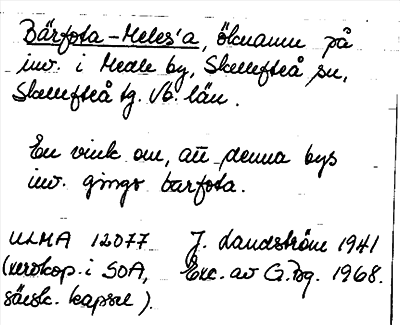 Bärfota-Meles'a, öknamn på
inv. i Medle by, Skellefteå sn,
Skellefteå tg. Vb. län.
En vink om, att denna bys
inv. gingo barfota.
ULMA 12077 J. Landström 1941
(xerokop. i SOA, Exc. av G. Bg. 1968.
särsk. kapsel).